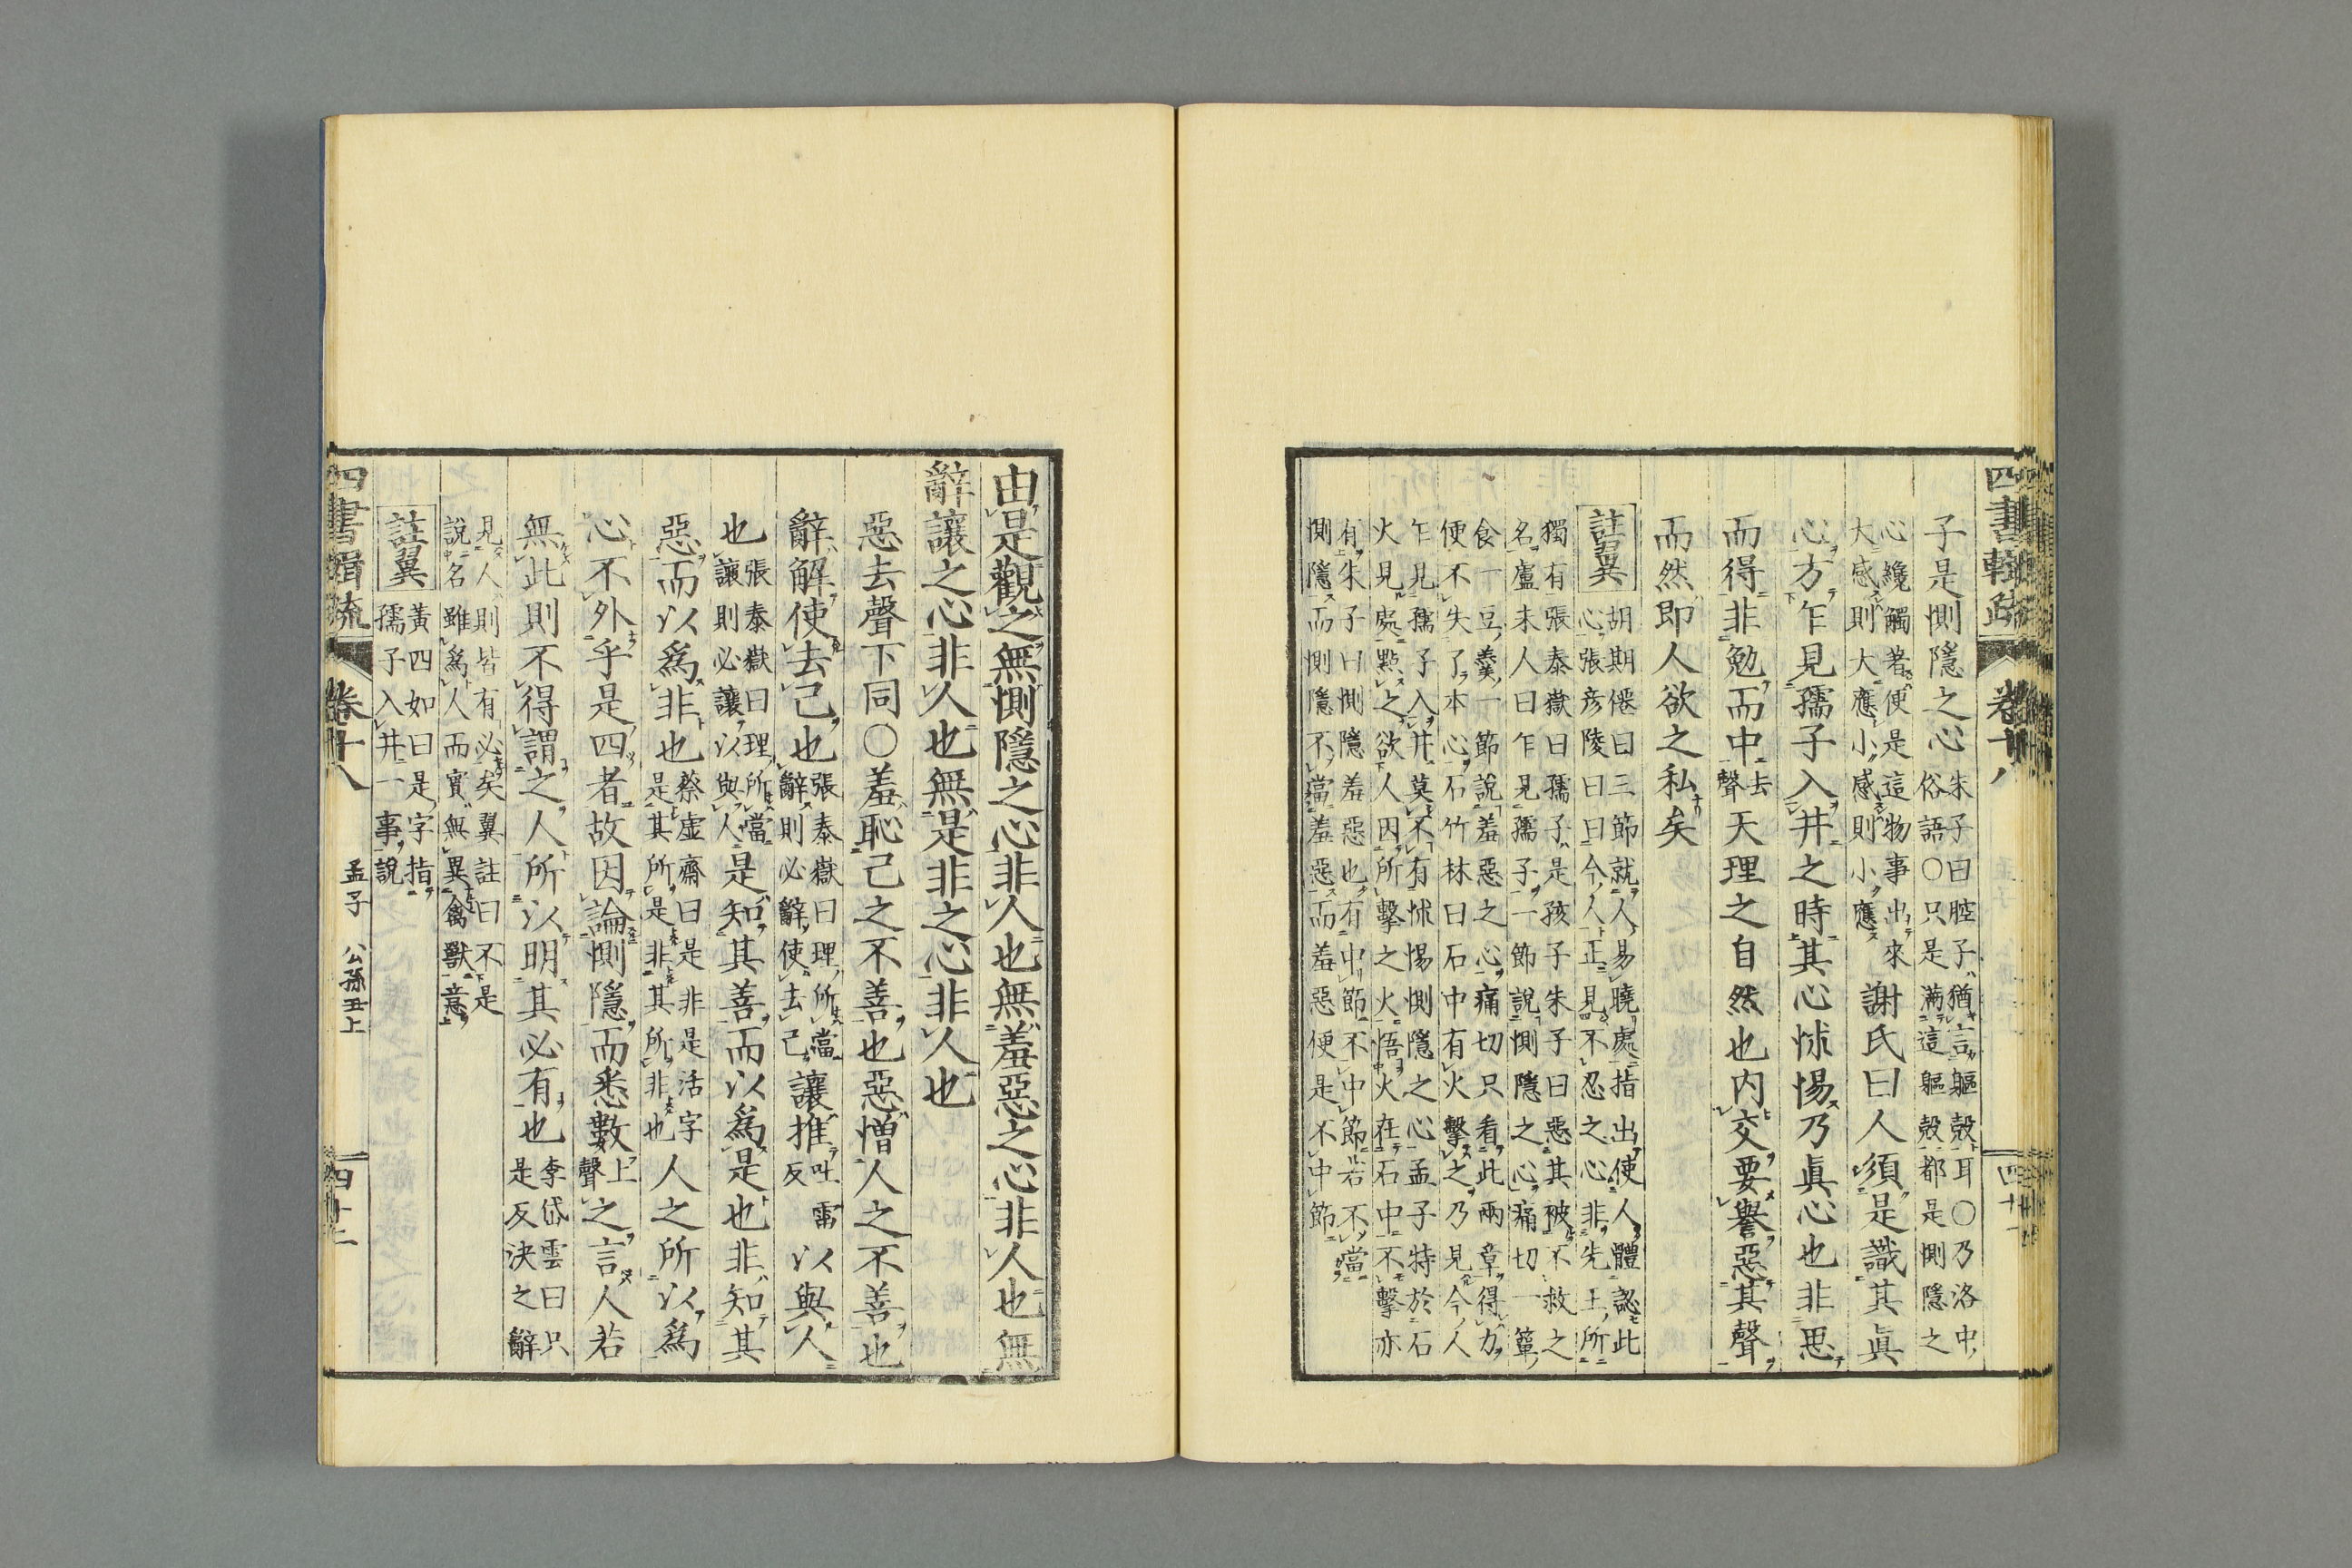 四書輯疏
卷十八
四十一
子是惻隱之心朱子曰腔子猶言軀殼耳○乃洛中
俗語○只是滿這軀殼都是惻隱之
心纔觸著便是這物事出來
大感則大應小感則小應謝氏曰人須是識其眞
心方乍見孺子入井之時其心怵惕乃眞心也非思
而得非勉而中去聲天理之自然也内交要譽惡其聲
而然即人欲之私矣
註翼
胡期僊曰三節就人易曉處指出使人體認此
心張彦陵曰曰今人正見不忍之心非先王所
獨有張泰嶽曰孺子是孩子朱子曰惡其被不救之
名盧未人曰乍見孺子一節說惻隱之心痛切一簞
食一豆羮一節說羞惡之心痛切只看此兩章得力
便不失了本心石竹林曰石中有火擊之乃見今人
乍見孺子入井莫不有怵惕惻隱之心孟子特於石
火見處點之欲人因所擊之火悟火在石中不擊亦
有朱子曰惻隱羞惡也有中節不中節若不當
惻隱而惻隱不當羞惡而羞惡便是不中節
由是觀之無惻隱之心非人也無羞惡之心非人也無
辭讓之心非人也無是非之心非人也
惡去聲下同○羞恥己之不善也惡憎人之不善也
辭解使去己也張泰嶽曰理所當
辭則必辭使去己讓推吐雷
反以與人
也張泰嶽曰理所當
讓則必讓以與人是知其善而以爲是也非知其
惡而以爲非也蔡虚齋曰是非是活字
是其所是非其所非也人之所以爲
心不外乎是四者故因論惻隱而悉數上
聲之言人若
無此則不得謂之人所以明其必有也李岱雲曰只
是反決之辭
見人則皆有必矣翼註曰不是
說名雖爲人而實無異禽獸意
註翼
黃四如曰是字指
孺子入井一事說
四書輯疏
卷十八
孟子 公孫丑上
四十二